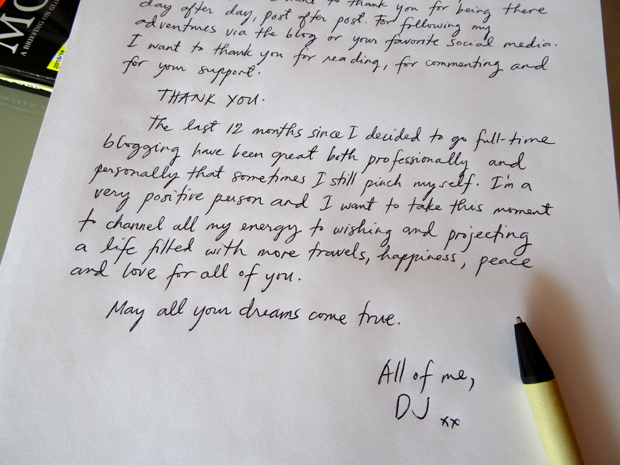 to thank you for being there
day after day, post after post. For following my
adventures via the blog or your favorite social media.
I want to thank you for reading, for commenting and
for your support.
THANK YOU.
The last 12 months since I decided to go full-time
blogging have been great both professionally and
personally that sometimes I still pinch myself. I'm a
very positive person and I want to take this moment
to channel all my energy to wishing and projecting
a life filled with more travels, happiness, peace
and love for all of you.
May all your dreams come true.
All of me,
DJ xx
MO
A BRIEFING ON